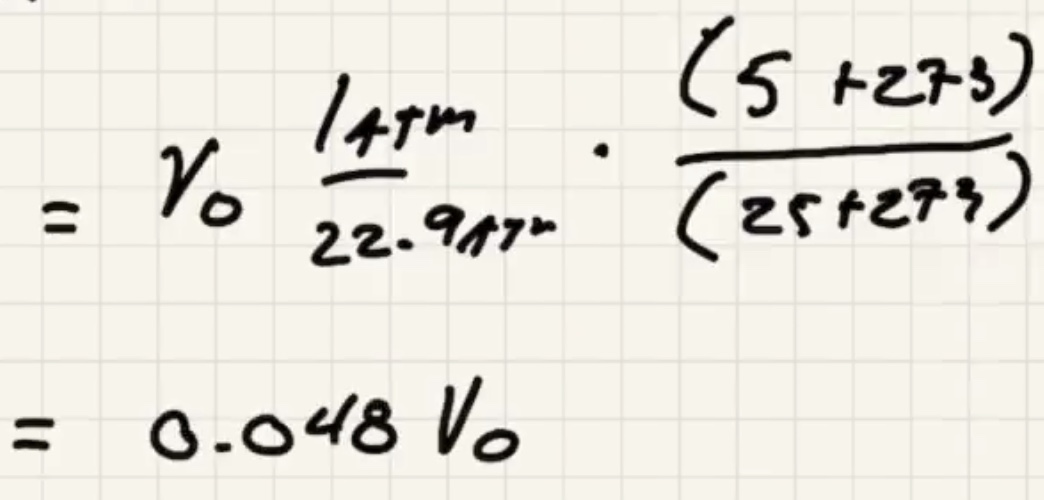 = V₀ 1ATM/22.9ATM · (5 +273)/(25+273)
= 0.048 V₀